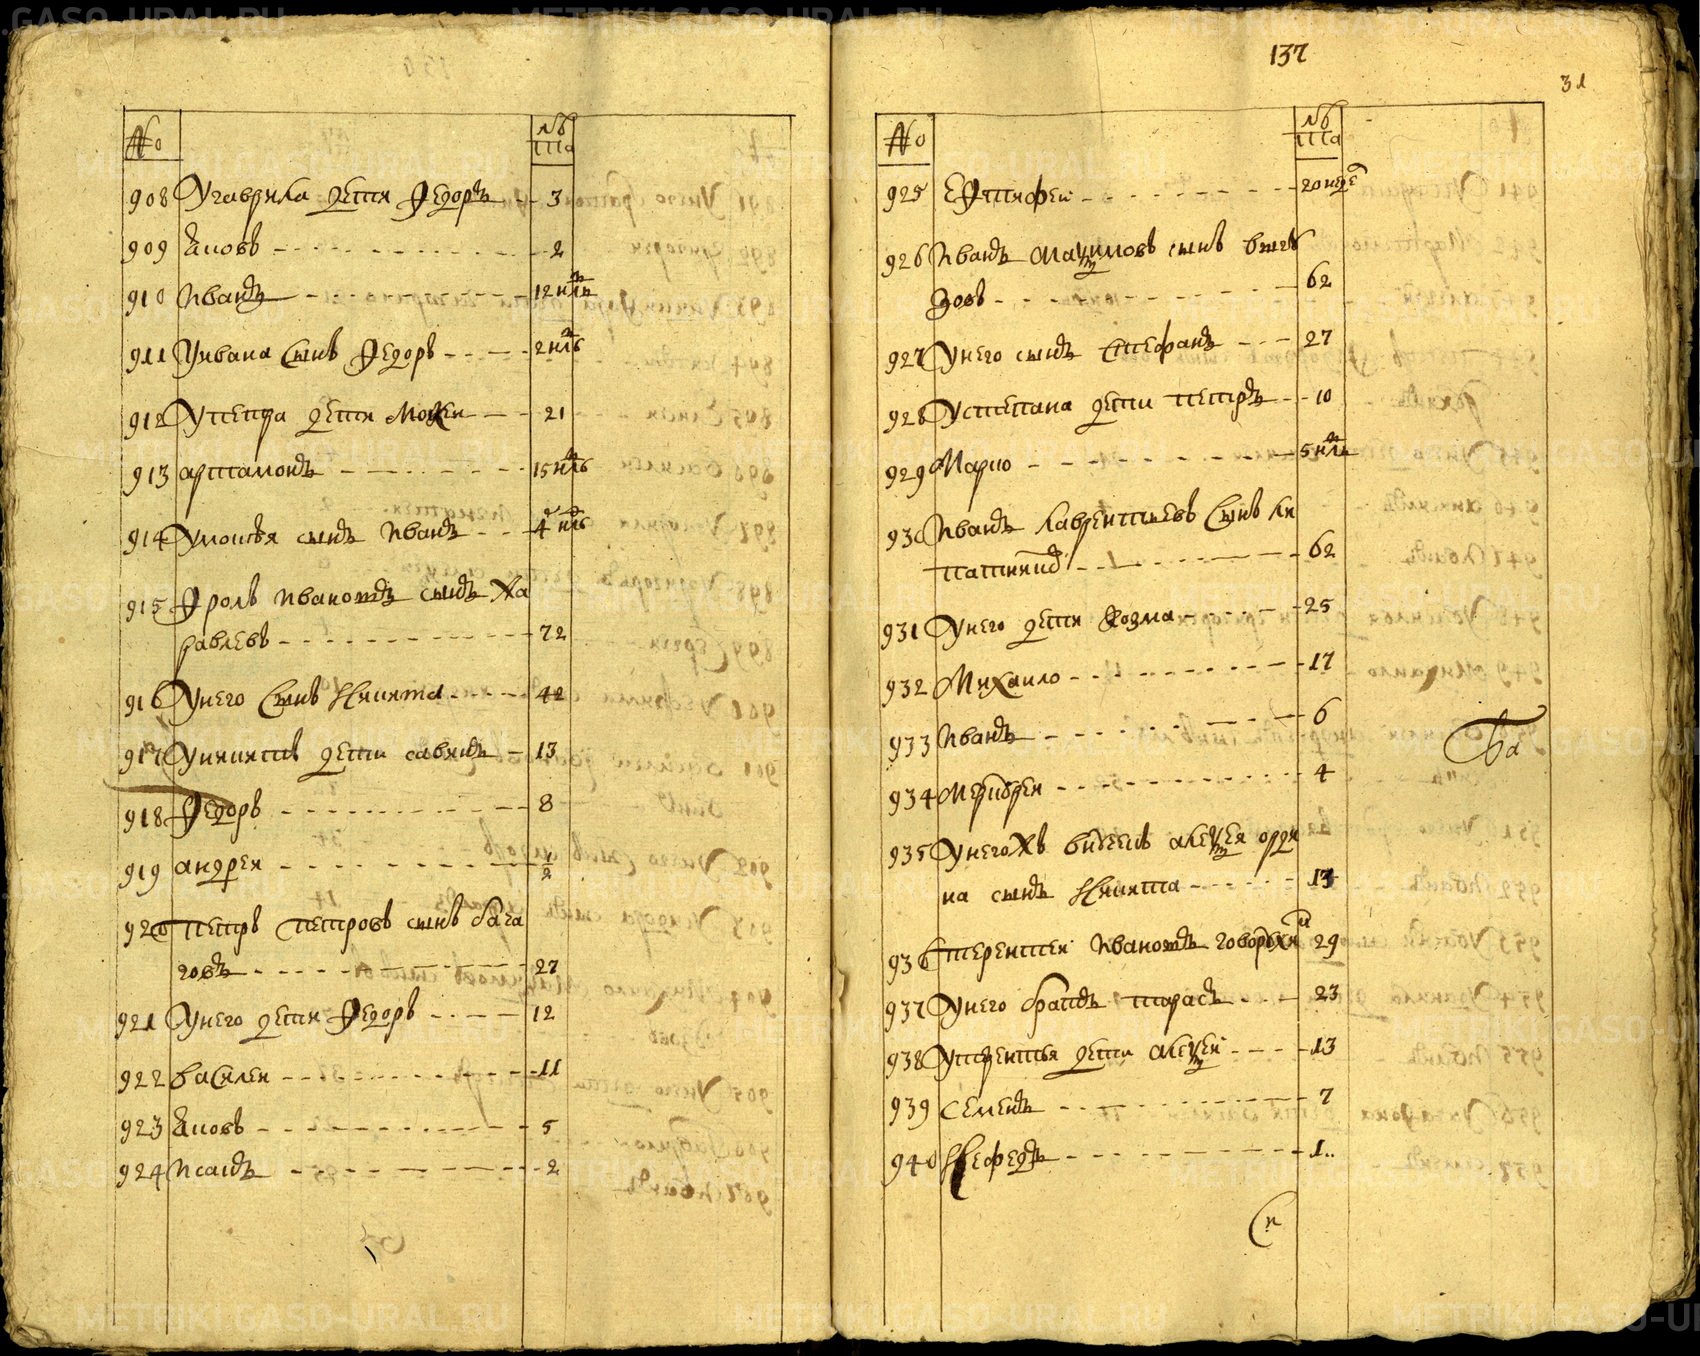 137
31
№
лѣ
та
908 У гаврила дети Федоръ 3
909 Яковъ 2
910 Иванъ 12 н҃дль
911 У ивана сынъ Федоръ 2 н҃дль
912 У петра дети Мокеи 21
913 артамонъ 15 н҃дль
914 У мокѣя сынъ Иванъ 4 н҃дль
915 Фролъ Ивановъ сынъ Ха
равлевъ 72
916 У него сынъ Никита 42
917 У никиты дети савинъ 13
918 Федоръ 8
919 андреи 1/2
920 Петръ Петровъ сынъ бага
говъ 27
921 У него дети Федоръ 12
922 василеи 11
923 Яковъ 5
924 Исакъ 2
№
лѣ
та
925 Ефтифеи 20 нде
926 Иванъ Маѯимовъ сынъ
зовъ 62
927 У него сынъ Стефанъ 27
928 У степана дети петръ 10
929 Марко 5 н҃дль
930 Иванъ Лаврентьевъ сынъ ли
патниковъ 62
931 У него дети Козма 25
932 Михаило 17
933 Иванъ 6
934 Меркурей 4
935 У него жъ алеѯея
на сынъ Никита 14
936 терентеи Ивановъ говорухи 29
937 У него братъ тарасъ 23
938 У терентья дети Алеѯеи 13
939 Семенъ 7
940 Нефедъ 1